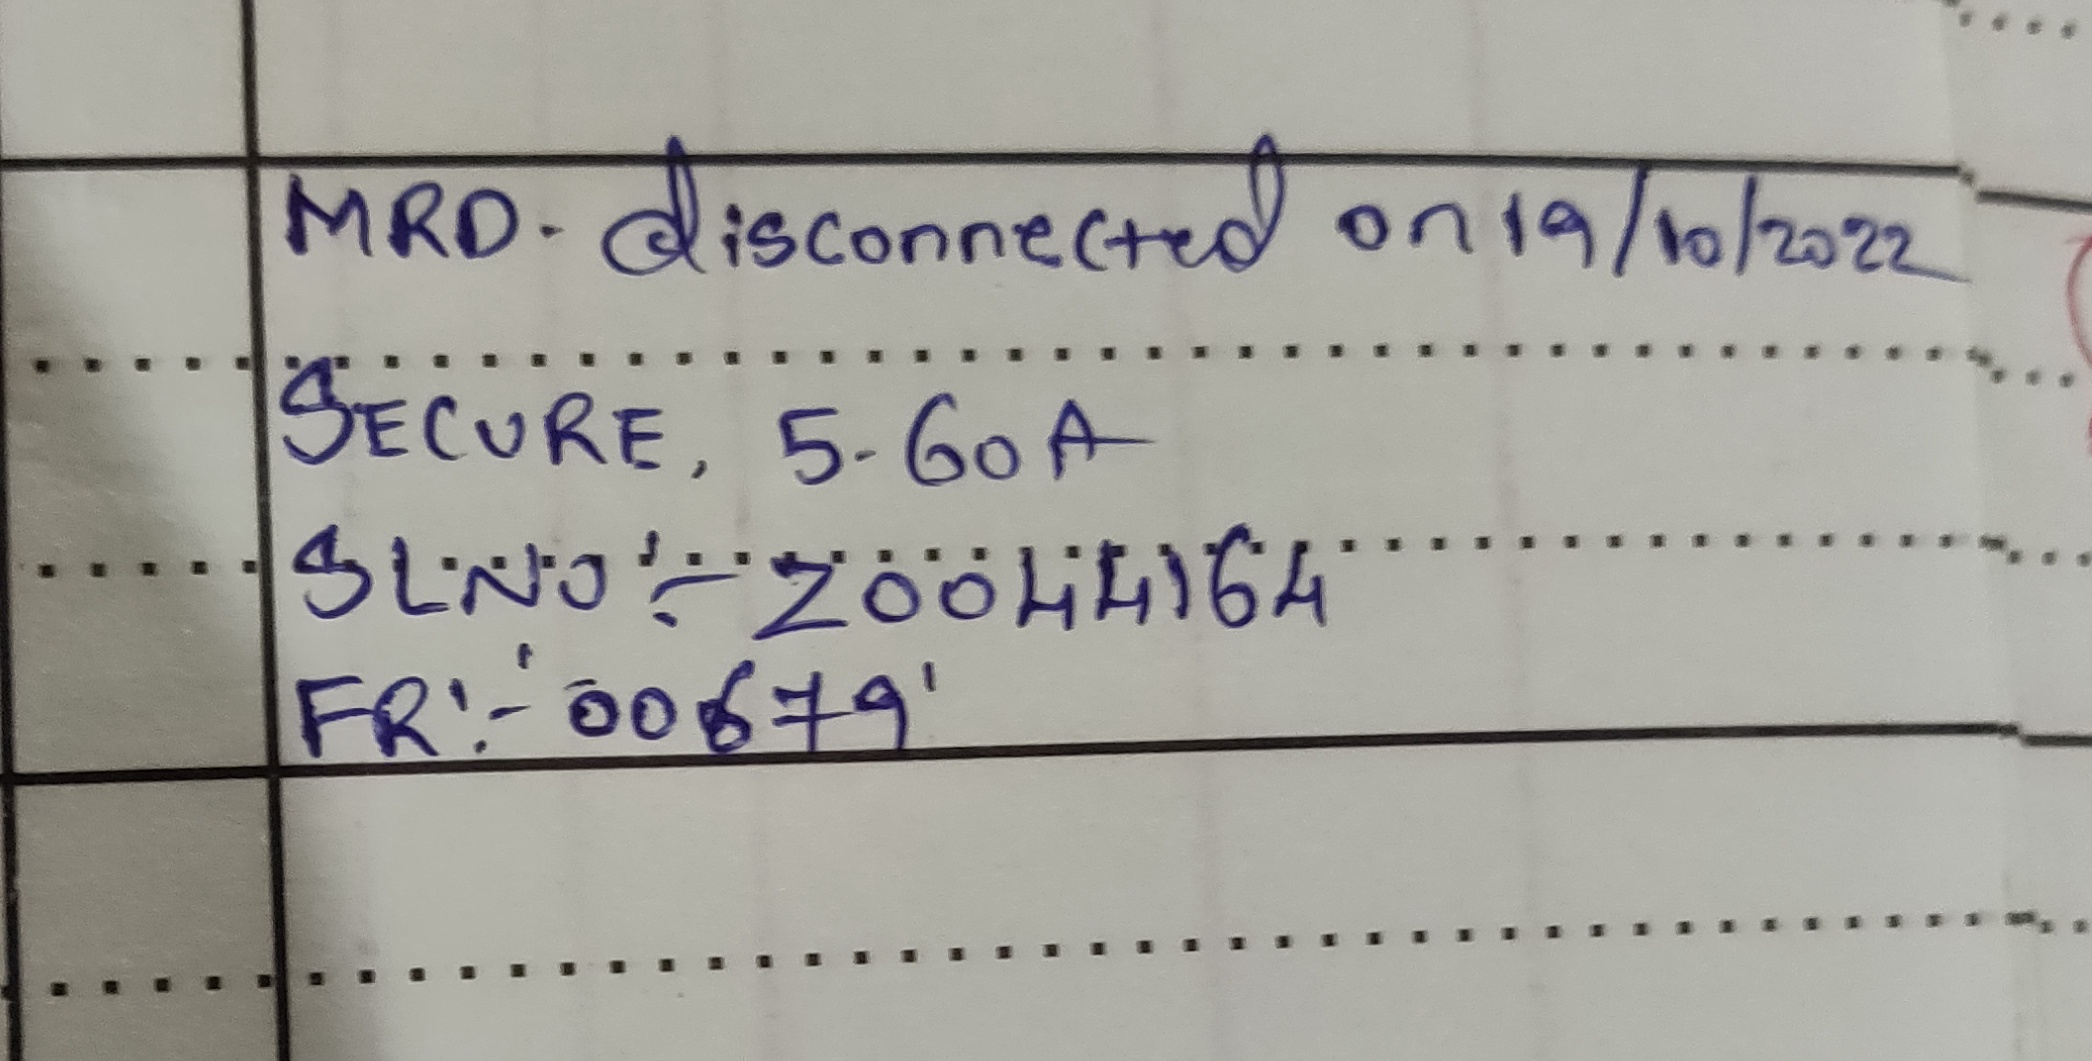 MRD. disconnected on 19/10/2022
SECURE, 5-60A
SLNO:- Z0044164
FR:- '00679'